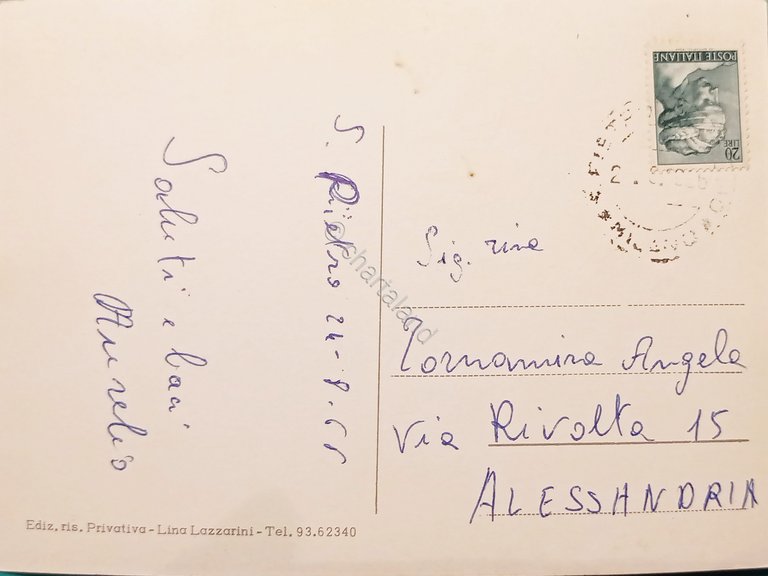 S. Pietro 24-8.65
Saluti e baci
Aurelio
Ediz. ris. Privativa - Lina Lazzarini - Tel. 93.62340
POSTE ITALIANE
LIRE
20
MILANO
Sig. rina
Tornamira Angela
Via Rivolta 15
ALESSANDRIA
©chartaland